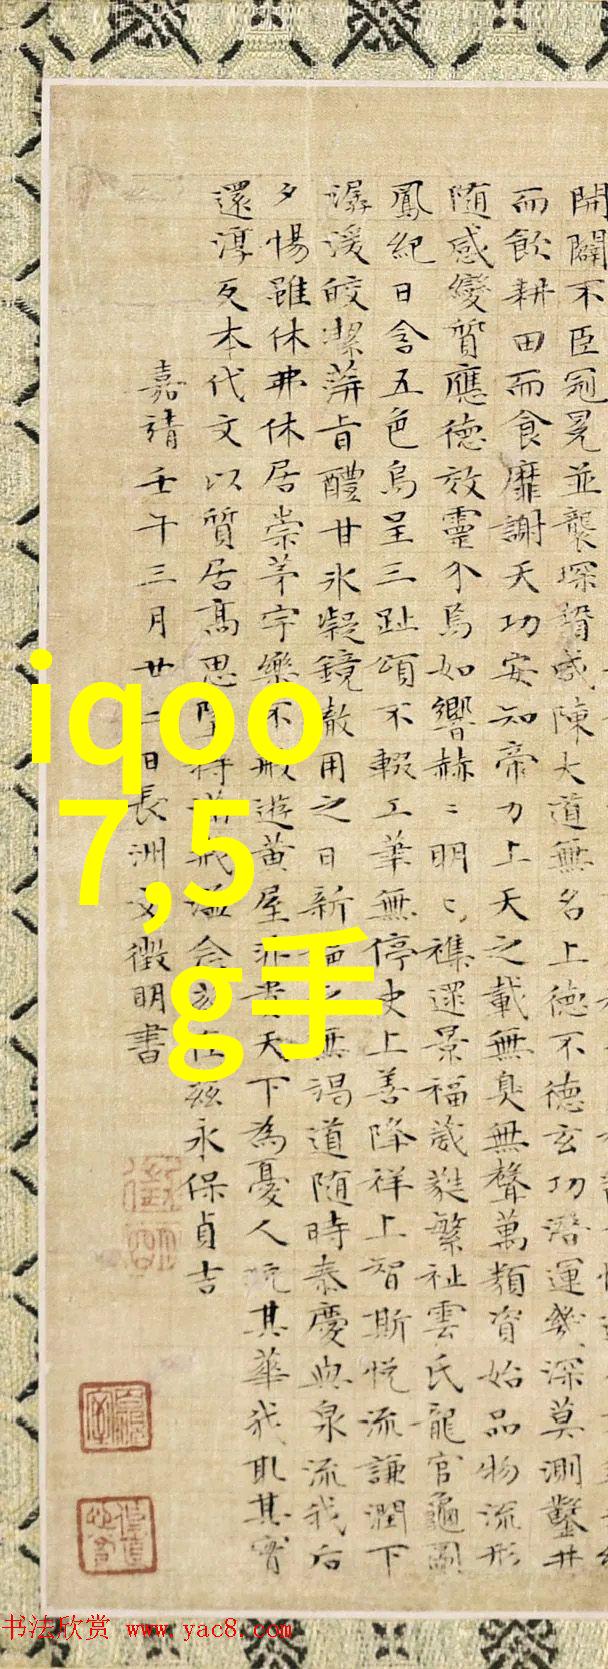 開闢不臣冠冕並襲琛贄咸陳大道無名上德不德玄功潛運幾深莫測鑿井
而飲耕田而食靡謝天功安知帝力上天之載無臭無聲萬類資始品物流形
随感變質應德效靈介焉如響赫〻明〻襍遝景福葳蕤繁祉雲氏龍官龜圖
鳳紀日含五色烏呈三趾頌不輟工筆無停史上善降祥上智斯悦流謙潤下
潺湲皎潔蓱旨醴甘氷凝鏡澈用之日新挹之無竭道随時泰慶與泉流我后
夕惕雖休弗休居崇茅宇樂不般遊黄屋非貴天下為憂人玩其華我取其實
還淳反本代文以質居高思墜持滿戒溢念茲在茲永保貞吉
嘉靖壬午三月廿二日長洲文徵明書
iqoo
7,5
g手
书法欣赏 www.yac8.com